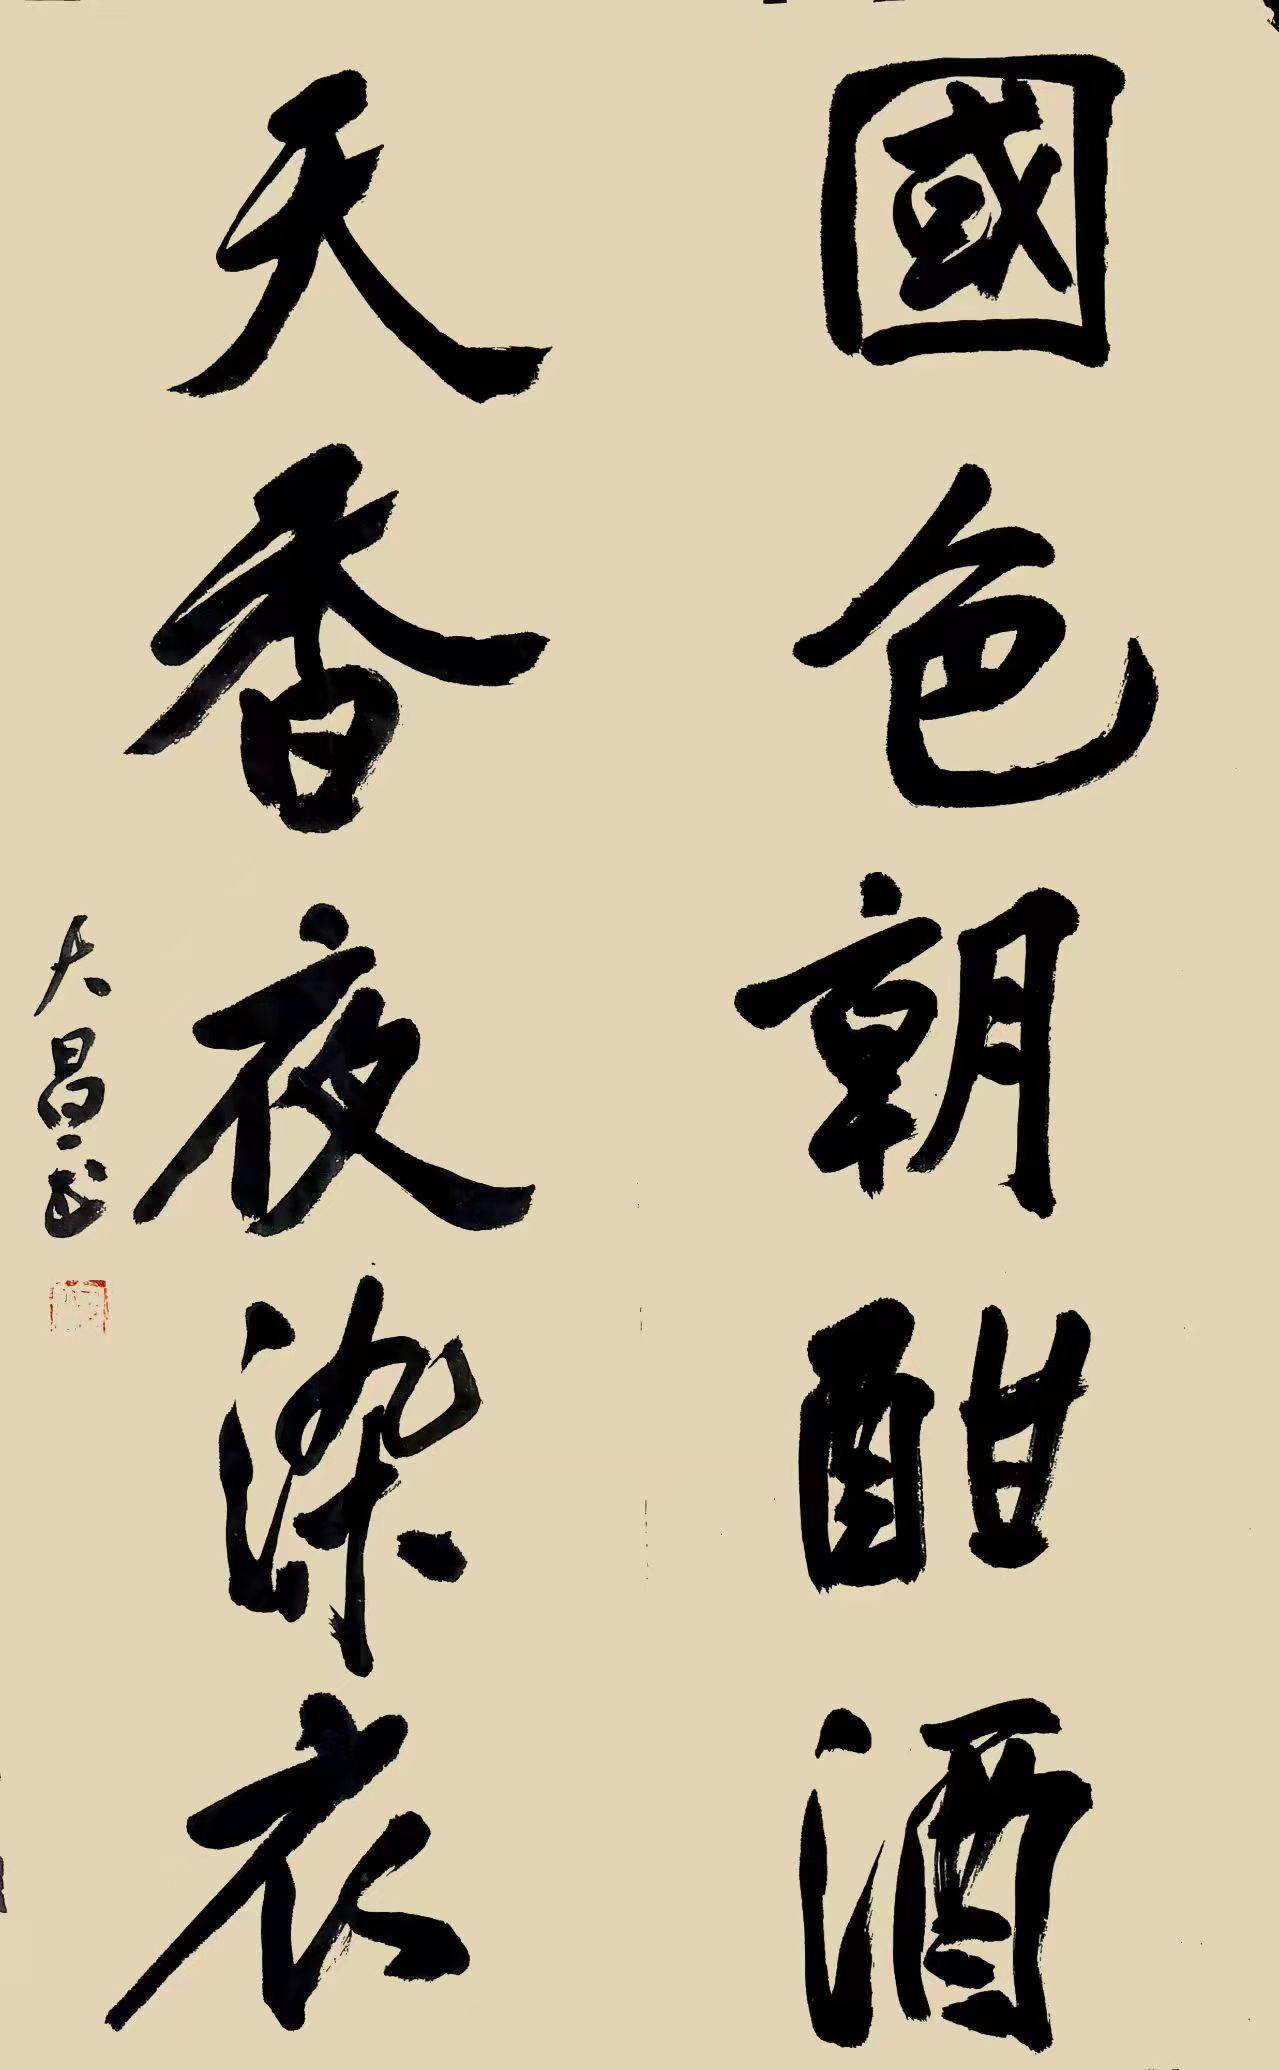 國色朝酣酒
天香夜染衣
大昌書